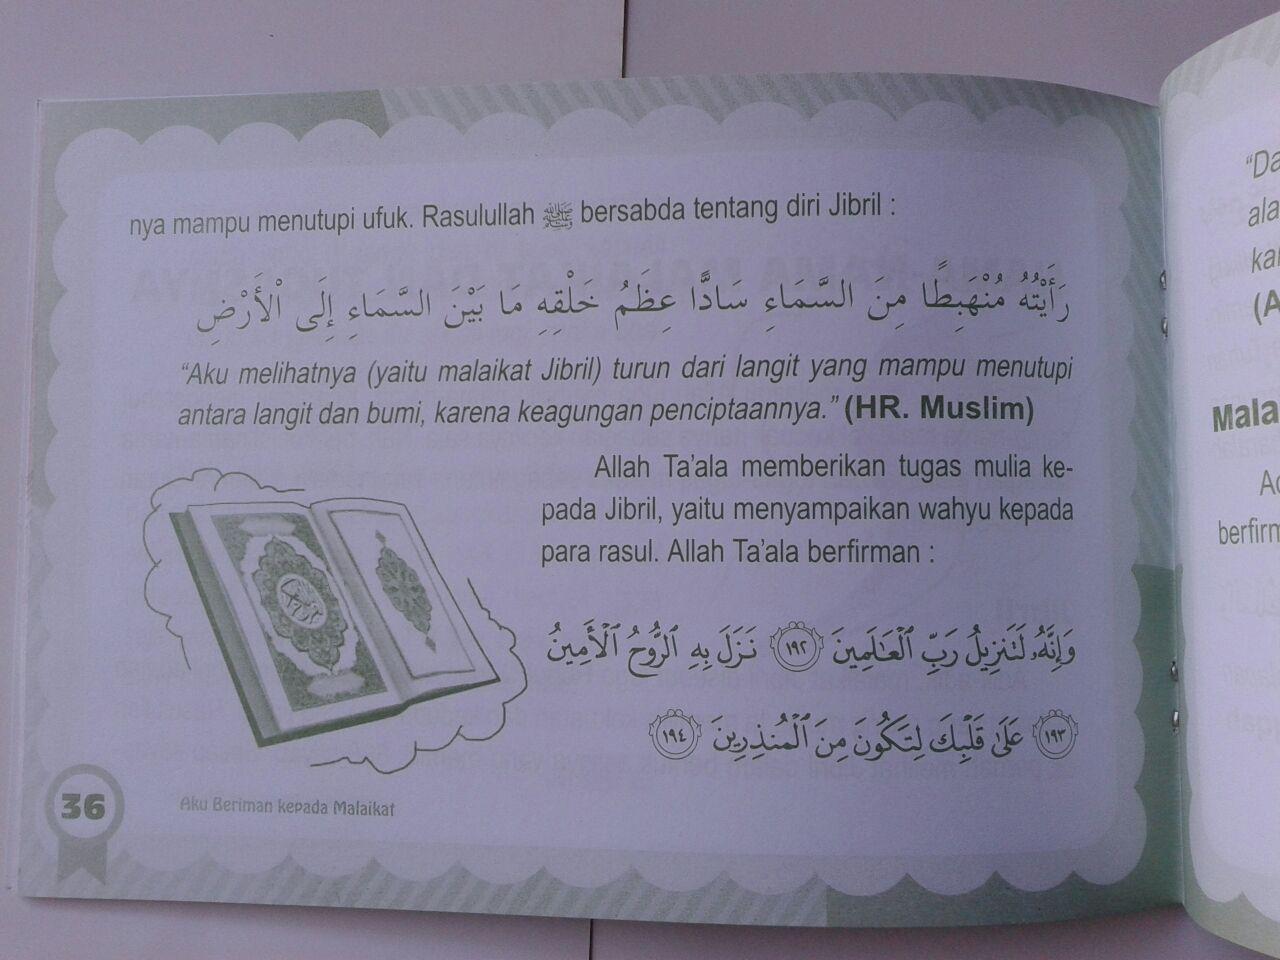 nya mampu menutupi ufuk. Rasulullah ﷺ bersabda tentang diri Jibril :
رَأَيْتُهُ مُنْهَبِطًا مِنَ السَّمَاءِ سَادًّا عِظَمُ خَلْقِهِ مَا بَيْنَ السَّمَاءِ إِلَى الْأَرْضِ
“Aku melihatnya (yaitu malaikat Jibril) turun dari langit yang mampu menutupi
antara langit dan bumi, karena keagungan penciptaannya.” (HR. Muslim)
Allah Ta’ala memberikan tugas mulia ke-
pada Jibril, yaitu menyampaikan wahyu kepada
para rasul. Allah Ta’ala berfirman :
وَإِنَّهُۥ لَتَنزِيلُ رَبِّ ٱلْعَـٰلَمِينَ ١٩٢ نَزَلَ بِهِ ٱلرُّوحُ ٱلْأَمِينُ
١٩٣ عَلَىٰ قَلْبِكَ لِتَكُونَ مِنَ ٱلْمُنذِرِينَ ١٩٤
36
Aku Beriman kepada Malaikat
“Da
ala
(A
Mala
berfirm